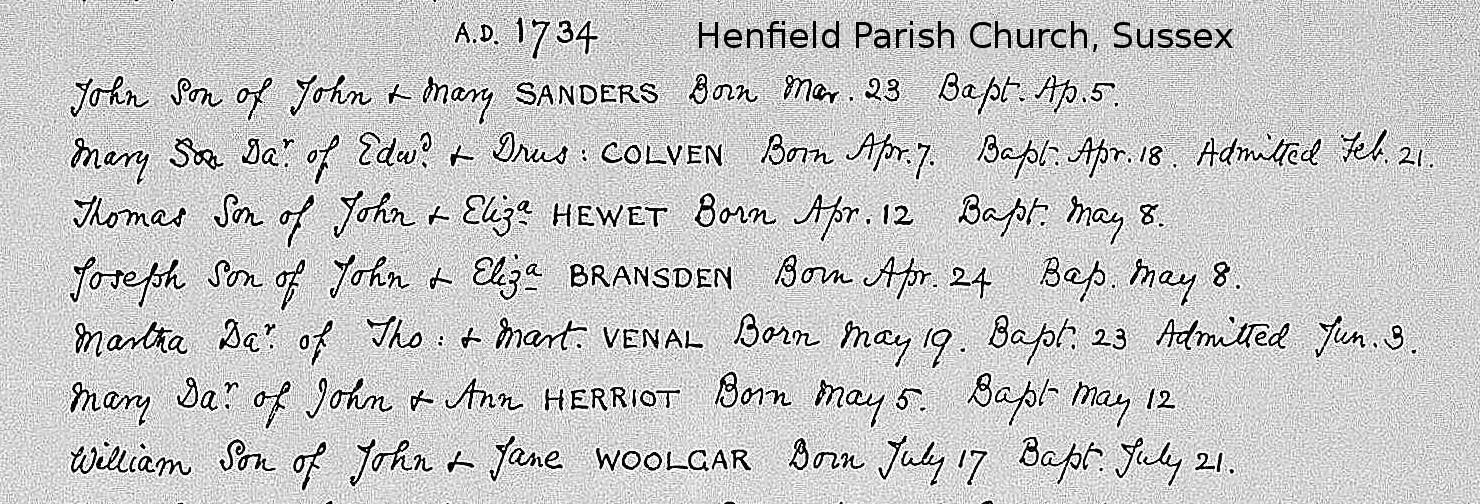 A.D. 1734 Henfield Parish Church, Sussex
John Son of John & Mary SANDERS Born Mar. 23 Bapt. Ap. 5.
Mary Son Dar. of Edwd. & Drus: COLVEN Born Apr. 7. Bapt. Apr. 18. Admitted Feb. 21.
Thomas Son of John & Eliza HEWET Born Apr. 12 Bapt. May 8.
Joseph Son of John & Eliza BRANSDEN Born Apr. 24 Bap. May 8.
Martha Dar. of Tho: & Mart. VENAL Born May 19. Bapt. 23 Admitted Jun. 3.
Mary Dar. of John & Ann HERRIOT Born May 5. Bapt May 12
William Son of John & Jane WOOLGAR Born July 17 Bapt. July 21.